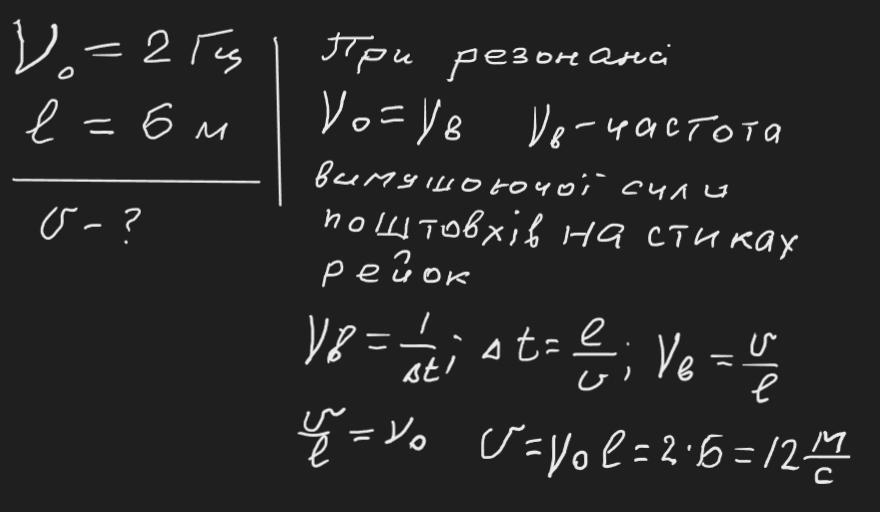 ν₀ = 2 Гц
l = 6 м
υ - ?
При резонансі
ν₀ = νв νв - частота
вимушуючої сили
поштовхів на стиках
рейок
νв = 1/Δt; Δt = l/υ; νв = υ/l
υ/l = ν₀ υ = ν₀ l = 2·6 = 12 м/с